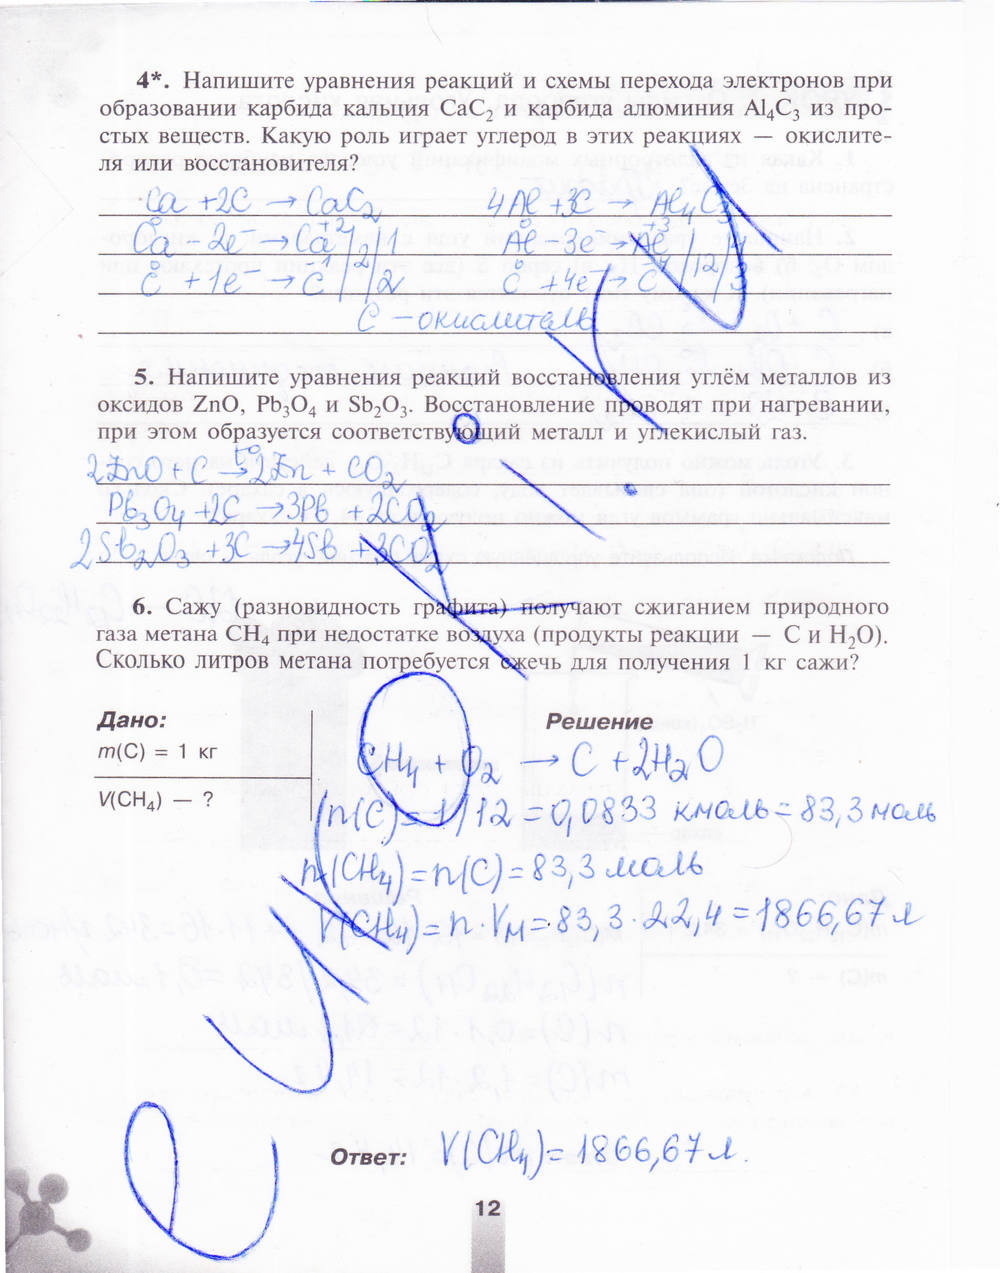 4*. Напишите уравнения реакций и схемы перехода электронов при
образовании карбида кальция CaC₂ и карбида алюминия Al₄C₃ из про-
стых веществ. Какую роль играет углерод в этих реакциях — окислите-
ля или восстановителя?
Ca + 2C → CaC₂ 4Al + 3C → Al₄C₃
Ca⁰ - 2e⁻ → Ca⁺² | 2 | 1 Al⁰ - 3e⁻ → Al⁺³ | 12 | 4
C⁰ + 1e⁻ → C⁻¹ | | 2 C⁰ + 4e⁻ → C⁻⁴ | | 3
C - окислитель
5. Напишите уравнения реакций восстановления углём металлов из
оксидов ZnO, Pb₃O₄ и Sb₂O₃. Восстановление проводят при нагревании,
при этом образуется соответствующий металл и углекислый газ.
2ZnO + C →t° 2Zn + CO₂
Pb₃O₄ + 2C → 3Pb + 2CO₂
2Sb₂O₃ + 3C → 4Sb + 3CO₂
6. Сажу (разновидность графита) получают сжиганием природного
газа метана CH₄ при недостатке воздуха (продукты реакции — C и H₂O).
Сколько литров метана потребуется сжечь для получения 1 кг сажи?
Дано: Решение
m(C) = 1 кг
V(CH₄) — ?
CH₄ + O₂ → C + 2H₂O
n(C) = 1/12 = 0,0833 кмоль = 83,3 моль
n(CH₄) = n(C) = 83,3 моль
V(CH₄) = n · Vм = 83,3 · 22,4 = 1866,67 л
Ответ: V(CH₄) = 1866,67 л.
12